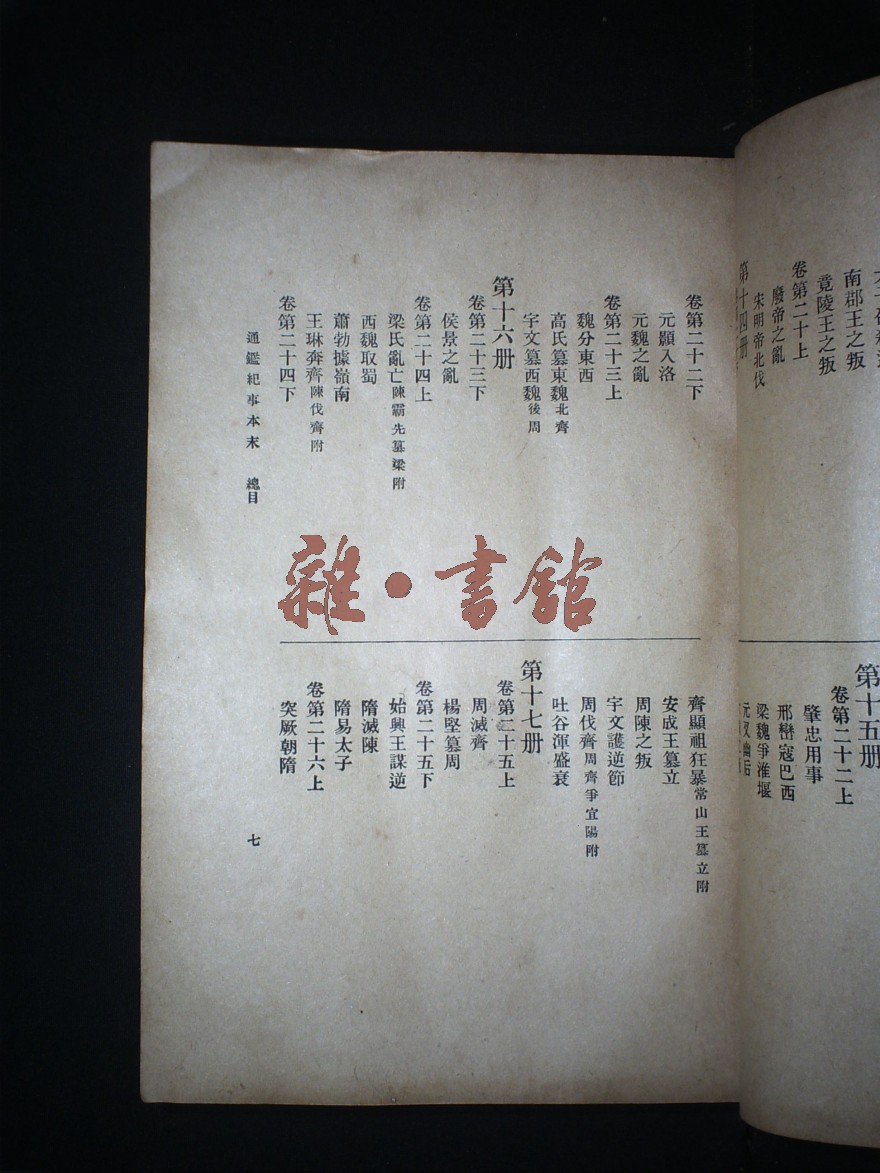 南郡王之叛
竟陵王之叛
卷第二十上
廢帝之亂
宋明帝北伐
第十四册
第十五册
卷第二十二上
肇忠用事
邢巒寇巴西
梁魏爭淮堰
元叉幽后
卷第二十二下
元顥入洛
元魏之亂
卷第二十三上
魏分東西
高氏篡東魏北齊
宇文篡西魏後周
第十六册
卷第二十三下
侯景之亂
卷第二十四上
梁氏亂亡陳霸先篡梁附
西魏取蜀
蕭勃據嶺南
王琳奔齊陳伐齊附
卷第二十四下
齊顯祖狂暴常山王篡立附
安成王篡立
周陳之叛
宇文護逆節
周伐齊周齊爭宜陽附
吐谷渾盛衰
第十七册
卷第二十五上
周滅齊
楊堅篡周
卷第二十五下
始興王謀逆
隋滅陳
隋易太子
卷第二十六上
突厥朝隋
通鑑紀事本末 總目
七
雜·書館